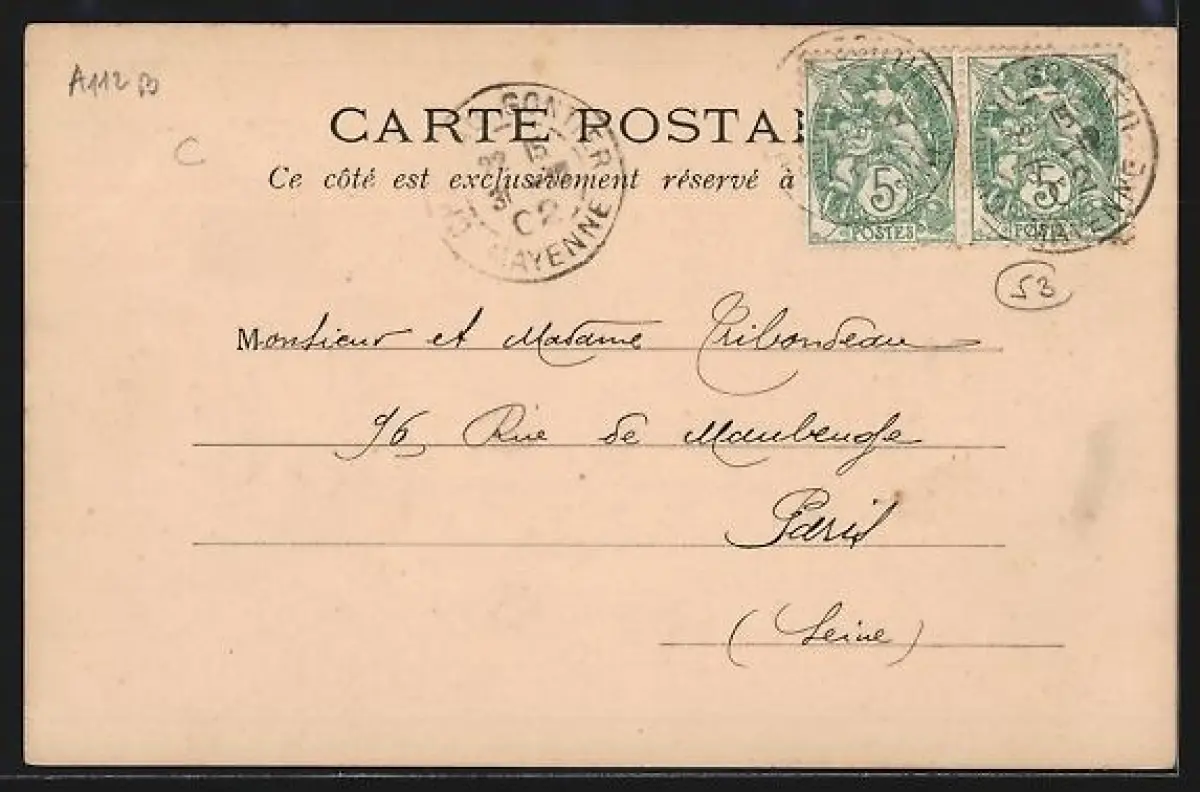 A112 B
C
CARTE POSTA
Ce côté est exclusivement réservé à
GONTIER
15
02
MAYENNE
5c 5c
POSTES POSTES
MAYENNE
53
Monsieur et Madame Tribondeau
96 Rue de Maubeuge
Paris
(Seine)